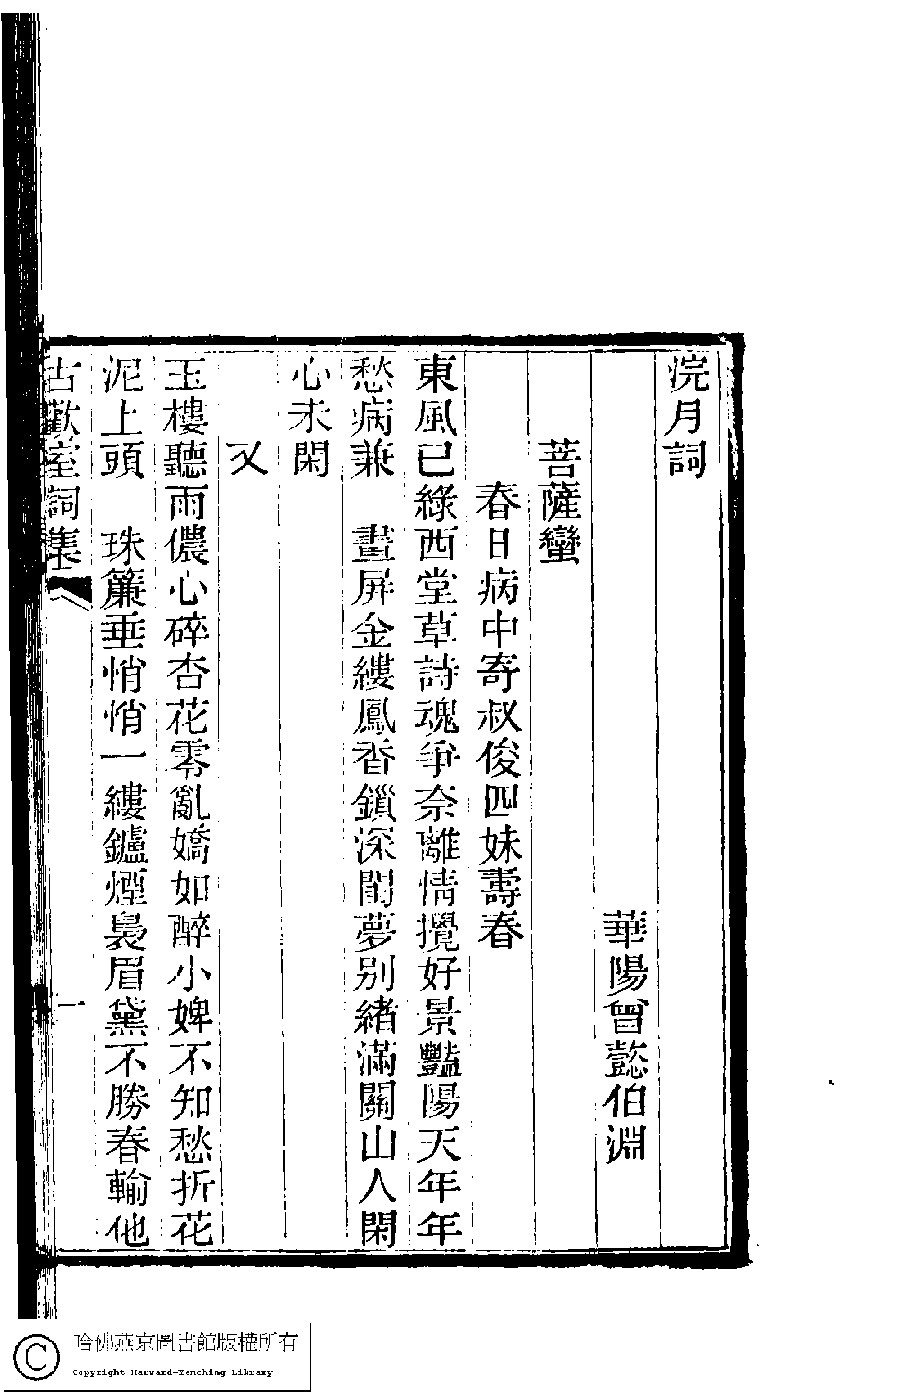 浣月詞
華陽曾懿伯淵
菩薩蠻
春日病中寄叔俊四妹壽春
東風已綠西堂草詩魂爭奈離情攪好景豔陽天年年
愁病兼　畫屏金縷鳳香鎖深閨夢别緒滿關山人閑
心未閑
又
玉樓聽雨儂心碎杏花零亂嬌如醉小婢不知愁折花
泥上頭　珠簾垂悄悄一縷鑪煙裊眉黛不勝春輸他
古歡室詞集
一
哈佛燕京圖書館版權所有
Copyright Harvard-Yenching Library